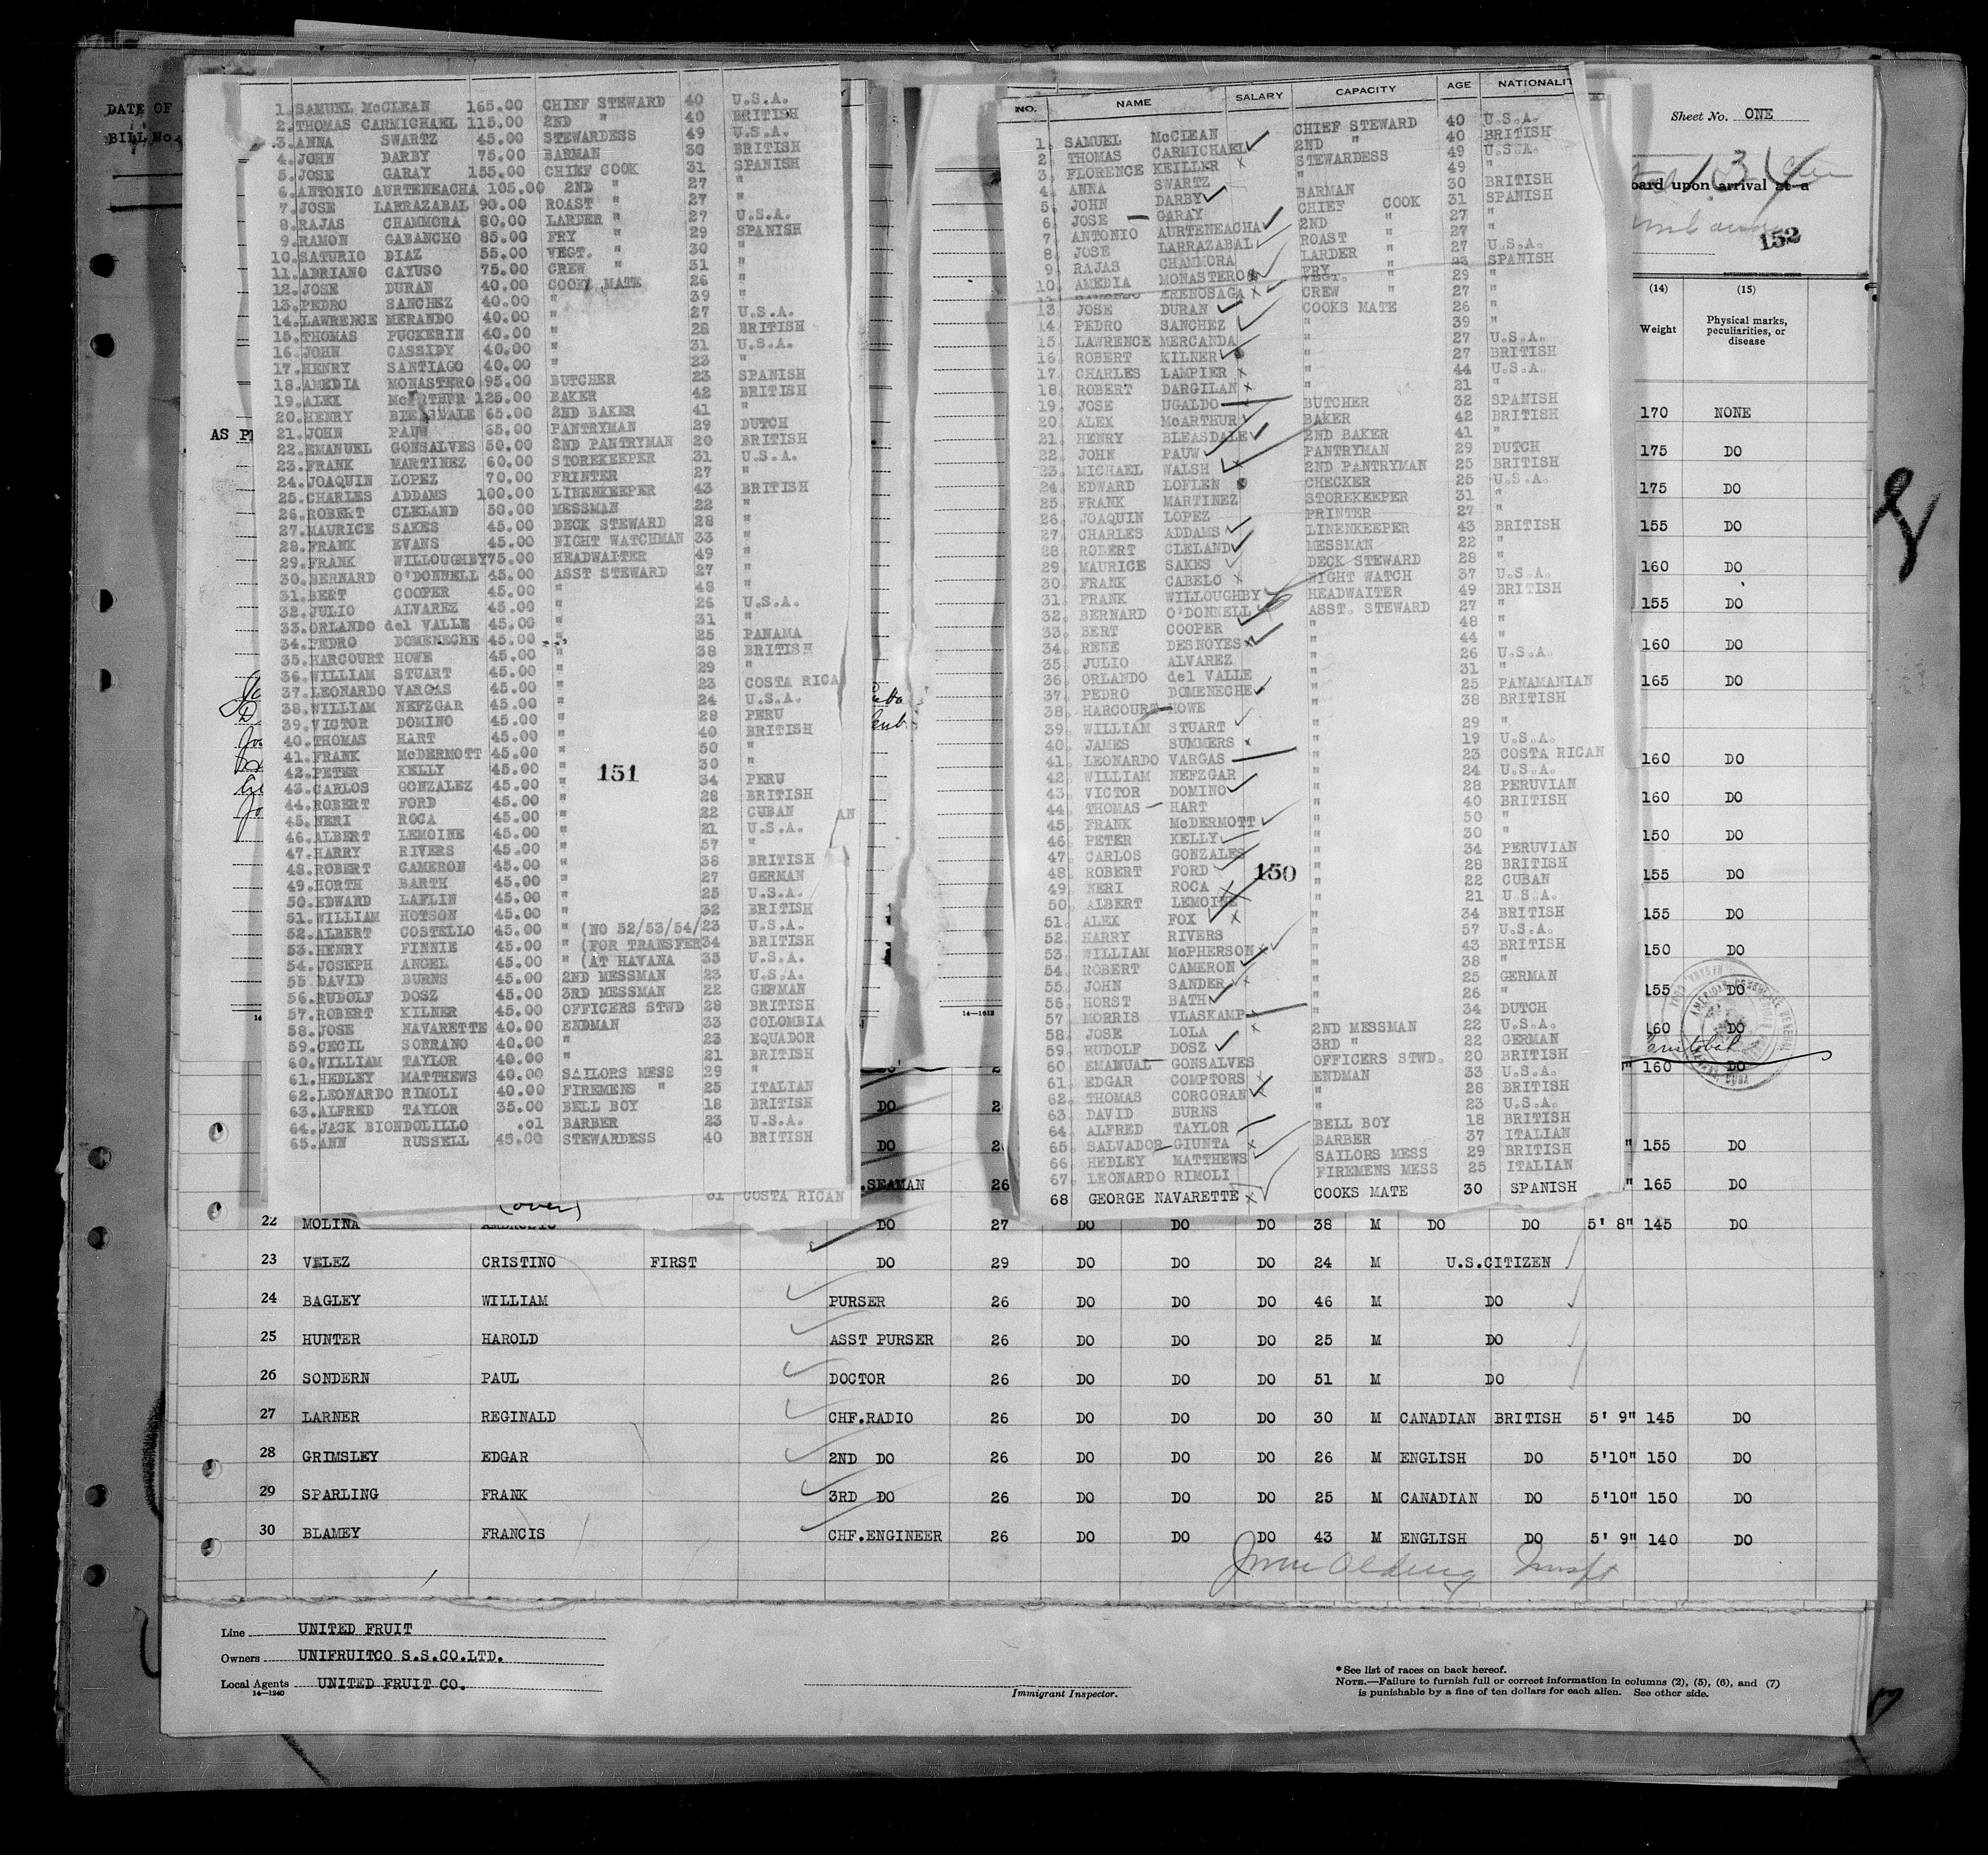 DATE OF
BILL No.
1. SAMUEL McCLEAN 165.00 CHIEF STEWARD 40 U.S.A.
2. THOMAS CARMICHAEL 115.00 2ND " 40 BRITISH
3. ANNA SWARTZ 45.00 STEWARDESS 49 U.S.A.
4. JOHN DARBY 75.00 BARMAN 30 BRITISH
5. JOSE GARAY 155.00 CHIEF COOK 31 SPANISH
6. ANTONIO AURTENEACHA 105.00 2ND " 27 "
7. JOSE LARRAZABAL 90.00 ROAST " 27 "
8. RAJAS CHAMMORA 80.00 LARDER " 27 U.S.A.
9. RAMON GABANCHO 85.00 FRY " 29 SPANISH
10. SATURIO DIAZ 55.00 VEGT. " 30 "
11. ADRIANO CAYUSO 75.00 CREW " 31 "
12. JOSE DURAN 40.00 COOKS MATE 26 "
13. PEDRO SANCHEZ 40.00 " 39 "
14. LAWRENCE MERANDO 40.00 " 27 U.S.A.
15. THOMAS PUCKERIN 40.00 " 28 BRITISH
16. JOHN CASSIDY 40.00 " 31 U.S.A.
17. HENRY SANTIAGO 40.00 " 23 "
18. AMEDIA MONASTERO 95.00 BUTCHER 23 SPANISH
19. ALEX McARTHUR 125.00 BAKER 42 BRITISH
20. HENRY BLEASDALE 65.00 2ND BAKER 41 "
21. JOHN PAUW 65.00 PANTRYMAN 29 DUTCH
22. EMANUEL GONSALVES 50.00 2ND PANTRYMAN 20 BRITISH
23. FRANK MARTINEZ 60.00 STOREKEEPER 31 U.S.A.
24. JOAQUIN LOPEZ 70.00 PRINTER 27 "
25. CHARLES ADDAMS 100.00 LINENKEEPER 43 BRITISH
26. ROBERT CLELAND 50.00 MESSMAN 22 "
27. MAURICE SAKES 45.00 DECK STEWARD 28 "
28. FRANK EVANS 45.00 NIGHT WATCHMAN 33 "
29. FRANK WILLOUGHBY 75.00 HEADWAITER 49 "
30. BERNARD O'DONNELL 45.00 ASST STEWARD 27 "
31. BERT COOPER 45.00 " 48 "
32. JULIO ALVAREZ 45.00 " 26 U.S.A.
33. ORLANDO del VALLE 45.00 " 31 "
34. PEDRO DOMENECHE 45.00 " 25 PANAMA
35. HARCOURT HOWE 45.00 " 38 BRITISH
36. WILLIAM STUART 45.00 " 29 "
37. LEONARDO VARGAS 45.00 " 23 COSTA RICA
38. WILLIAM NEFZGAR 45.00 " 24 U.S.A.
39. VICTOR DOMINO 45.00 " 28 PERU
40. THOMAS HART 45.00 " 40 BRITISH
41. FRANK McDERMOTT 45.00 " 50 "
42. PETER KELLY 45.00 " 30 "
43. CARLOS GONZALEZ 45.00 " 34 PERU
44. ROBERT FORD 45.00 " 28 BRITISH
45. NERI ROCA 45.00 " 22 CUBAN
46. ALBERT LEMOINE 45.00 " 21 U.S.A.
47. HARRY RIVERS 45.00 " 57 "
48. ROBERT CAMERON 45.00 " 38 BRITISH
49. HORTH BARTH 45.00 " 27 GERMAN
50. EDWARD LAFLIN 45.00 " 25 U.S.A.
51. WILLIAM HOTSON 45.00 " 32 BRITISH
52. ALBERT COSTELLO 45.00 " (NO 52/53/54/ 23 U.S.A.
53. HENRY FINNIE 45.00 " (FOR TRANSFER 34 BRITISH
54. JOSEPH ANGEL 45.00 " (AT HAVANA 35 U.S.A.
55. DAVID BURNS 45.00 2ND MESSMAN 23 U.S.A.
56. RUDOLF DOSZ 45.00 3RD MESSMAN 22 GERMAN
57. ROBERT KILNER 45.00 OFFICERS STWD 28 BRITISH
58. JOSE NAVARETTE 40.00 ENDMAN 33 COLOMBIA
59. CECIL SORRANO 40.00 " 23 EQUADOR
60. WILLIAM TAYLOR 40.00 " 21 BRITISH
61. HEDLEY MATTHEWS 40.00 SAILORS MESS 29 "
62. LEONARDO RIMOLI 40.00 FIREMENS " 25 ITALIAN
63. ALFRED TAYLOR 35.00 BELL BOY 18 BRITISH
64. JACK BIONDOLILLO .01 BARBER 23 U.S.A.
65. ANN RUSSELL 45.00 STEWARDESS 40 BRITISH
151
NO. NAME SALARY CAPACITY AGE NATIONALIT
1. SAMUEL McCLEAN CHIEF STEWARD 40 U.S.A.
2. THOMAS CARMICHAEL 2ND " 40 BRITISH
3. FLORENCE KEILLER STEWARDESS 49 U.S.A.
4. ANNA SWARTZ " 49 "
5. JOHN DARBY BARMAN 30 BRITISH
6. JOSE GARAY CHIEF COOK 31 SPANISH
7. ANTONIO AURTENEACHA 2ND " 27 "
8. JOSE LARRAZABAL ROAST " 27 "
9. RAJAS CHAMMORA LARDER " 27 U.S.A.
10. AMEDIA MONASTERO FRY " 23 SPANISH
ARENOSAGA CREW " 27 "
13. JOSE DURAN COOKS MATE 26 "
14. PEDRO SANCHEZ " 39 "
15. LAWRENCE MERCANDA " 27 U.S.A.
16. ROBERT KILNER " 27 BRITISH
17. CHARLES LAMPIER " 44 U.S.A.
18. ROBERT DARGILAN " 21 "
19. JOSE UGALDO BUTCHER 32 SPANISH
20. ALEX McARTHUR BAKER 42 BRITISH
21. HENRY BLEASDALE 2ND BAKER 41 "
22. JOHN PAUW PANTRYMAN 29 DUTCH
23. MICHAEL WALSH 2ND PANTRYMAN 25 BRITISH
24. EDWARD LOFLEN CHECKER 25 U.S.A.
25. FRANK MARTINEZ STOREKEEPER 31 "
26. JOAQUIN LOPEZ PRINTER 27 "
27. CHARLES ADDAMS LINENKEEPER 43 BRITISH
28. ROBERT CLELAND MESSMAN 22 "
29. MAURICE SAKES DECK STEWARD 28 "
30. FRANK CABELO NIGHT WATCH 37 U.S.A.
31. FRANK WILLOUGHBY HEADWAITER 49 BRITISH
32. BERNARD O'DONNELL ASST. STEWARD 27 "
33. BERT COOPER " 48 "
34. RENE DESNOYES " 44 "
35. JULIO ALVAREZ " 26 U.S.A.
36. ORLANDO del VALLE " 31 "
37. PEDRO DOMENECHE " 25 PANAMANIAN
38. HARCOURT HOWE " 38 BRITISH
39. WILLIAM STUART " 29 "
40. JAMES SUMMERS " 19 U.S.A.
41. LEONARDO VARGAS " 23 COSTA RICAN
42. WILLIAM NEFZGAR " 24 U.S.A.
43. VICTOR DOMINO " 28 PERUVIAN
44. THOMAS HART " 40 BRITISH
45. FRANK McDERMOTT " 50 "
46. PETER KELLY " 30 "
47. CARLOS GONZALES " 34 PERUVIAN
48. ROBERT FORD " 28 BRITISH
49. NERI ROCA " 22 CUBAN
50. ALBERT LEMOINE " 21 U.S.A.
51. ALEX FOX " 34 BRITISH
52. HARRY RIVERS " 57 U.S.A.
53. WILLIAM McPHERSON " 43 BRITISH
54. ROBERT CAMERON " 38 "
55. JOHN SANDER " 25 GERMAN
56. HORST BATH " 26 "
57. MORRIS VLASKAMP " 34 DUTCH
58. JOSE LOLA 2ND MESSMAN 22 U.S.A.
59. RUDOLF DOSZ 3RD " 22 GERMAN
60. EMANUAL GONSALVES OFFICERS STWD. 20 BRITISH
61. EDGAR COMPTORS ENDMAN 33 U.S.A.
62. THOMAS CORCORAN " 28 BRITISH
63. DAVID BURNS " 23 U.S.A.
64. ALFRED TAYLOR BELL BOY 18 BRITISH
65. SALVADOR GIUNTA BARBER 37 ITALIAN
66. HEDLEY MATTHEWS SAILORS MESS 29 BRITISH
67. LEONARDO RIMOLI FIREMENS MESS 25 ITALIAN
68 GEORGE NAVARETTE COOKS MATE 30 SPANISH
150
Sheet No. ONE
oard upon arrival at a
152
(14) (15)
Weight Physical marks, peculiarities, or disease
170 NONE
175 DO
175 DO
155 DO
160 DO
155 DO
160 DO
165 DO
160 DO
160 DO
150 DO
155 DO
155 DO
150 DO
155 DO
160 DO
Cristobal
160 DO
DO " 155 DO
.SEAMAN 26 " 165 DO
61 COSTA RICAN
(over)
22 MOLINA AMBROSIO DO 27 DO DO DO 38 M DO DO 5' 8" 145 DO
23 VELEZ CRISTINO FIRST DO 29 DO DO DO 24 M U.S.CITIZEN
24 BAGLEY WILLIAM PURSER 26 DO DO DO 46 M DO
25 HUNTER HAROLD ASST PURSER 26 DO DO DO 25 M DO
26 SONDERN PAUL DOCTOR 26 DO DO DO 51 M DO
27 LARNER REGINALD CHF.RADIO 26 DO DO DO 30 M CANADIAN BRITISH 5' 9" 145 DO
28 GRIMSLEY EDGAR 2ND DO 26 DO DO DO 26 M ENGLISH DO 5'10" 150 DO
29 SPARLING FRANK 3RD DO 26 DO DO DO 25 M CANADIAN DO 5'10" 150 DO
30 BLAMEY FRANCIS CHF.ENGINEER 26 DO DO DO 43 M ENGLISH DO 5' 9" 140 DO
Line UNITED FRUIT
Owners UNIFRUITCO S.S.CO.LTD.
Local Agents UNITED FRUIT CO.
14—1240
Immigrant Inspector.
*See list of races on back hereof.
NOTE.—Failure to furnish full or correct information in columns (2), (5), (6), and (7)
is punishable by a fine of ten dollars for each alien. See other side.